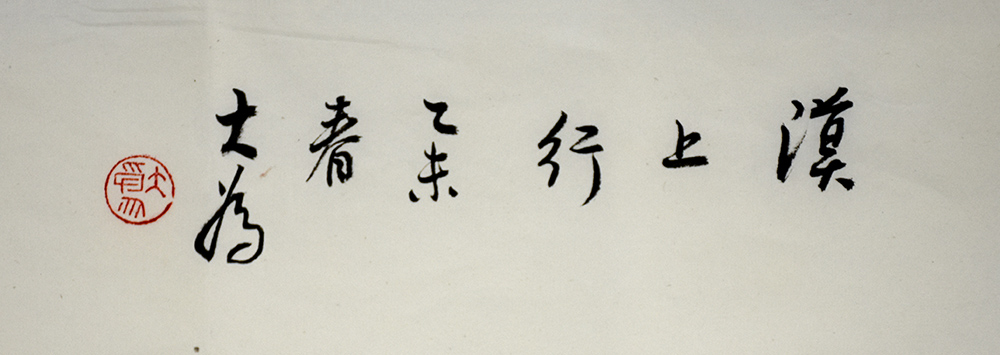 漠上行
乙未
春
大為
大為